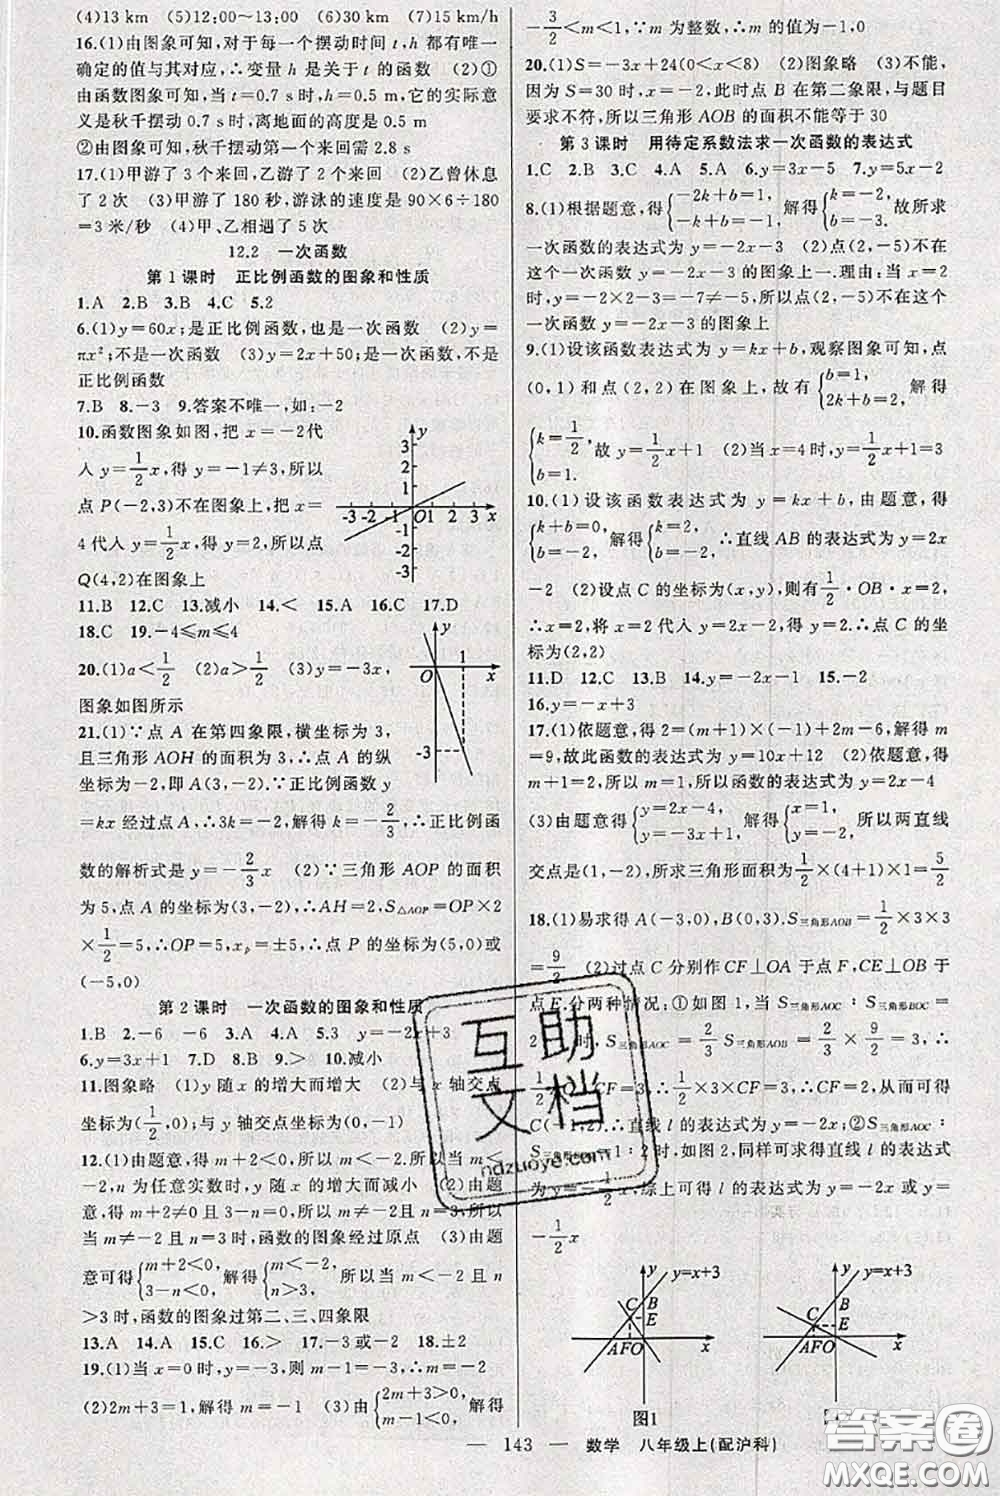 (4)13 km (5)12:00～13:00 (6)30 km (7)15 km/h
16.(1)由图象可知,对于每一个摆动时间 t,h 都有唯一
确定的值与其对应,∴变量 h 是关于 t 的函数 (2)①
由函数图象可知,当 t=0.7 s时,h=0.5 m,它的实际意
义是秋千摆动0.7 s时,离地面的高度是0.5 m
②由图象可知,秋千摆动第一个来回需2.8 s
17.(1)甲游了3个来回,乙游了2个来回 (2)乙曾休息
了2次 (3)甲游了180秒,游泳的速度是90×6÷180
=3米/秒 (4)甲、乙相遇了5次
12.2 一次函数
第1课时 正比例函数的图象和性质
1.A 2.B 3.B 4.C 5.2
6.(1)y=60x;是正比例函数,也是一次函数 (2)y=
πx²;不是一次函数 (3)y=2x+50;是一次函数,不是
正比例函数
7.B 8.-3 9.答案不唯一,如:-2
10.函数图象如图,把 x=-2代
入 y=1/2x,得 y=-1≠3,所以
点 P(-2,3)不在图象上,把 x=
4代入 y=1/2x,得 y=2,所以点
Q(4,2)在图象上
y 3 2 1 -3 -2 -1 O 1 2 3 x -1 -2 -3
11.B 12.C 13.减小 14.< 15.A 16.C 17.D
18.C 19.-4≤m≤4
20.(1)a<1/2 (2)a>1/2 (3)y=-3x,
图象如图所示
y 1 O x -3
21.(1)∵点 A 在第四象限,横坐标为3,
且三角形 AOH 的面积为3,∴点 A 的纵
坐标为-2,即A(3,-2).∵正比例函数 y
=kx 经过点 A,∴3k=-2,解得 k=-2/3,∴正比例函
数的解析式是 y=-2/3x (2)∵三角形 AOP 的面积
为5,点 A 的坐标为(3,-2),∴AH=2,S△AOP=OP×2
×1/2=5,∴OP=5,xₚ=±5,∴点 P 的坐标为(5,0)或
(-5,0)
第2课时 一次函数的图象和性质
1.B 2.-6 -6 3.A 4.A 5.3 y=-2x+3
6.y=3x+1 7.D 8.B 9.> 10.减小
11.图象略 (1)y 随 x 的增大而增大 (2)与 x 轴交点
坐标为(1/2,0);与 y 轴交点坐标为(0,-1)
12.(1)由题意,得 m+2<0,所以 m<-2.所以当 m<
-2,n 为任意实数时,y 随 x 的增大而减小 (2)由题
意,得 m+2≠0 且 3-n=0,所以 m≠-2,n=3,所以
当 m≠-2 且 n=3时,函数的图象经过原点 (3)由题
意可得{m+2<0, 3-n<0,解得{m<-2, n>3,所以当 m<-2 且 n
>3时,函数的图象过第二、三、四象限
13.A 14.A 15.C 16.> 17.-3或-2 18.±2
19.(1)当 x=0时,y=-3,则 m-1=-3,∴m=-2
(2)2m+3=1,解得 m=-1 (3)由{2m+3>0, m-1<0,解得
-3/2<m<1,∵m 为整数,∴m 的值为-1,0
20.(1)S=-3x+24(0<x<8) (2)图象略 (3)不能,
因为 S=30时,x=-2,此时点 B 在第二象限,与题目
要求不符,所以三角形 AOB 的面积不能等于30
第3课时 用待定系数法求一次函数的表达式
1.C 2.B 3.C 4.A 5.A 6.y=3x-5 7.y=5x-2
8.(1)根据题意,得{-2k+b=1, -k+b=-1,解得{k=-2, b=-3.故所求
一次函数的表达式为 y=-2x-3 (2)点(2,-5)不在
这个一次函数 y=-2x-3的图象上.理由:当 x=2
时,y=-2×2-3=-7≠-5,所以点(2,-5)不在这个
一次函数 y=-2x-3的图象上
9.(1)设该函数表达式为 y=kx+b,观察图象可知,点
(0,1)和点(2,2)在图象上,故有{b=1, 2k+b=2,解得
{k=1/2, b=1.故 y=1/2x+1 (2)当 x=4时,y=1/2x+1=3
10.(1)设该函数表达式为 y=kx+b,由题意,得
{k+b=0, b=-2,解得{k=2, b=-2.∴直线 AB 的表达式为 y=2x
-2 (2)设点 C 的坐标为(x,y),则有1/2·OB·x=2,
∴x=2,将 x=2代入 y=2x-2,得 y=2.∴点 C 的坐
标为(2,2)
11.D 12.C 13.B 14.y=-2x-1 15.-2
16.y=-x+3
17.(1)依题意,得2=(m+1)×(-1)+2m-6,解得 m
=9,故此函数的表达式为 y=10x+12 (2)依题意,得
m+1=2,所以 m=1,所以函数的表达式为 y=2x-4
(3)由题意得{y=2x-4, y=-3x+1,解得{x=1, y=-2,所以两直线
交点是(1,-2),所求三角形面积为1/2×(4+1)×1=5/2
18.(1)易求得 A(-3,0),B(0,3).S三角形AOB=1/2×3×3
=9/2 (2)过点 C 分别作 CF⊥OA 于点 F,CE⊥OB 于
点 E.分两种情况:①如图1,当 S三角形AOC:S三角形BOC=
2:1时,S三角形AOC=2/3 S三角形AOB=2/3×9/2=3,∴
1/2 OA·CF=3,∴1/2×3×CF=3,∴CF=2,从而可得
C(-1,2).∴直线 l 的表达式为 y=-2x;②S三角形AOC:
S三角形BOC=1:2时,如图2,同样可求得 l 的表达式
为 y=-1/2x,综上可得 l 的表达式为 y=-2x 或 y=
-1/2x
y y=x+3 C B E A F O x
图1
y y=x+3 C B E A F O x
— 143 — 数学 八年级上(配沪科)
互助文档
ndzuoye.com
答案圈
MXQE.COM